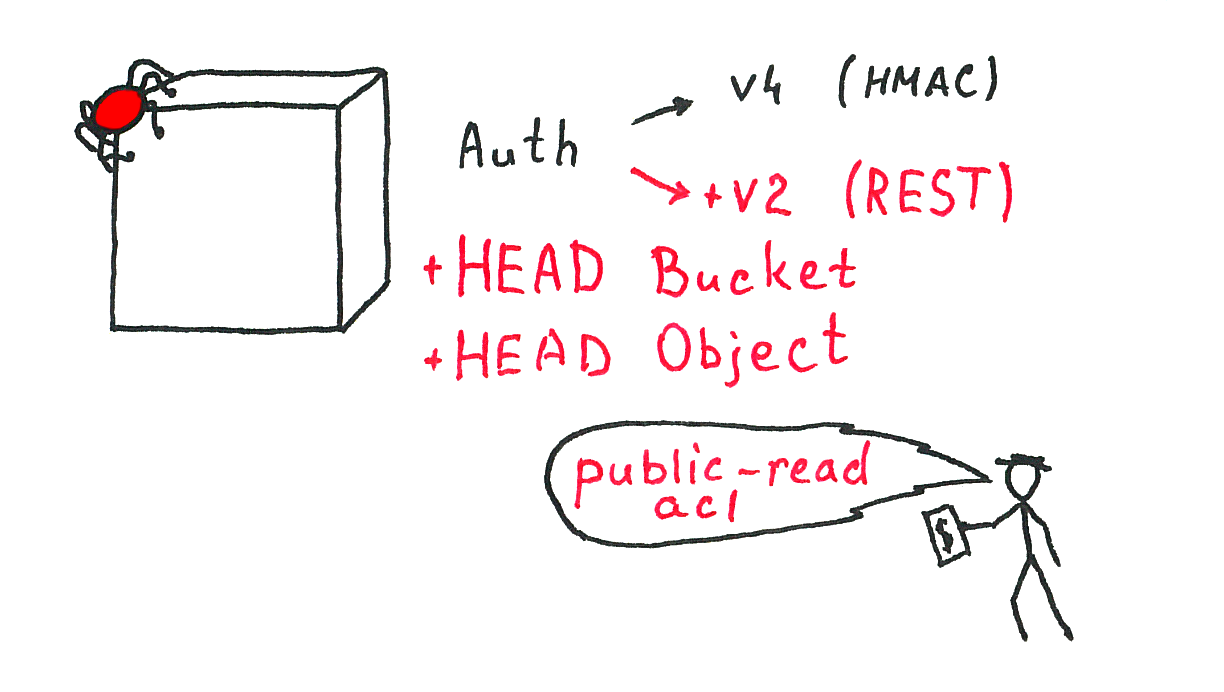 Auth
v4 (HMAC)
+v2 (REST)
+HEAD Bucket
+HEAD Object
public-read
acl
$